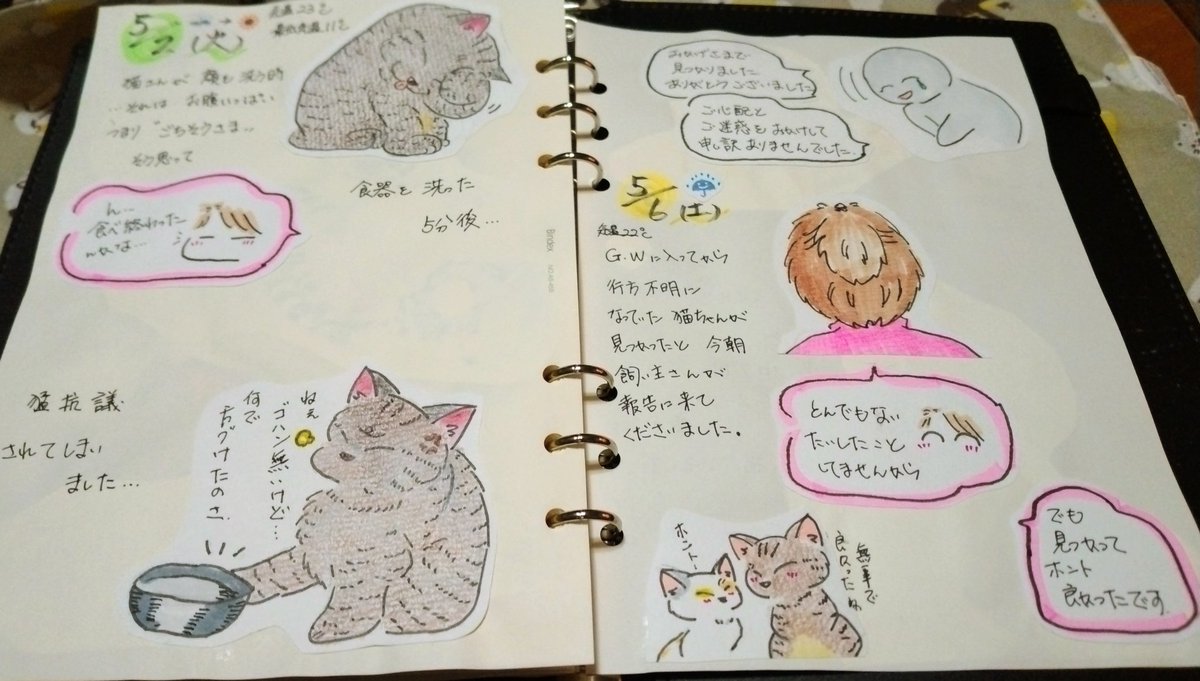 5/2 (火)
気温23℃
最低気温11℃
猫さんが 顔を洗う時
…それは お腹いっぱい
つまり "ごちそうさま"
そう思って
ん…
食べ終わった
んだな…
食器を 洗った
5分後…
猛抗議
されてしまい
ました…
ねぇ
ゴハン無いけど…
何で
片づけたのさ
Bindex
おかげさまで
見つかりました
ありがとうございました
ご心配と
ご迷惑をおかけして
申し訳ありませんでした
5/6 (土)
気温22℃
G.Wに入ってから
行方不明に
なっていた 猫ちゃんが
見つかったと 今朝
飼い主さんが
報告に来て
くださいました。
とんでもない
たいしたこと
してませんから
無事で
良かったね
ホント
でも
見つかって
ホント
良かったです